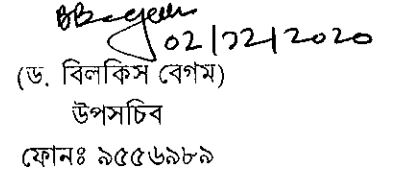 BBegum
02/12/2020
(ড. বিলকিস বেগম)
উপসচিব
ফোনঃ ৯৫৫৬৯৮৯